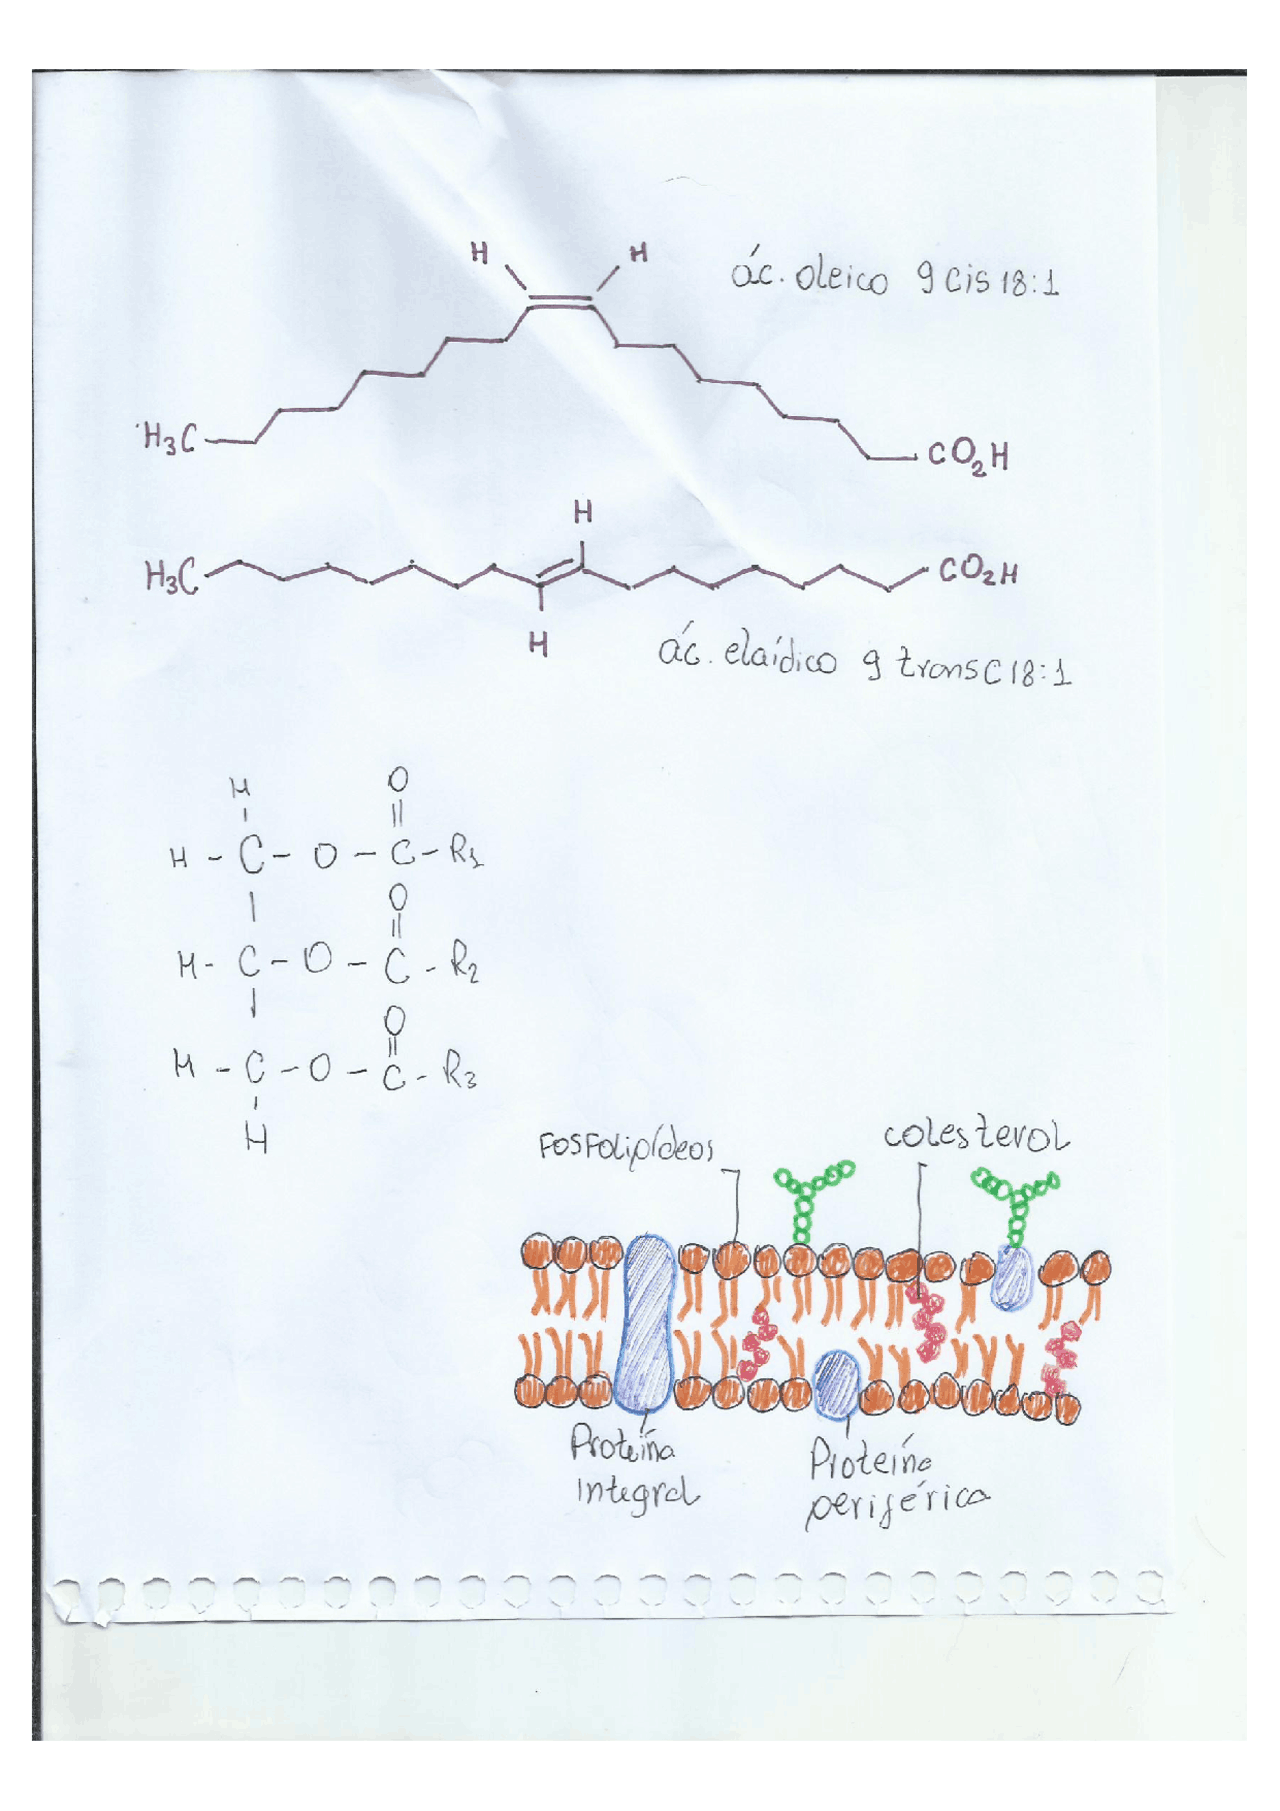 H H
ác. oleico 9 cis 18:1
H₃C CO₂H
H
H₃C CO₂H
H
ác. elaídico 9 trans C 18:1
H O
H - C - O - C - R₁
O
H - C - O - C - R₂
O
H - C - O - C - R₃
H
Fosfolipídeos
colesterol
Proteína
integral
Proteína
periférica